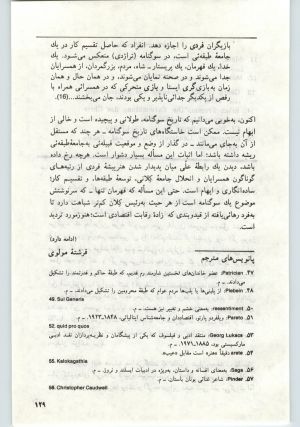 بازیگران فردی را اجازه دهد. انفراد که حاصل تقسیم کار در یك
جامعهٔ طبقه‌ئی است، در سوگنامه (تراژدی) منعکس می‌شود. یك
خدا، یك قهرمان، یك پریستار ــ شاه، مردم، بزرگمردان، از همسرایان
جدا می‌شوند و در صحنه نمایان می‌شوند، و در همان حال و همان
زمان به‌بازی‌گری ایستا و بازی متحرکی که در همسرائی همراه با
رقص از یکدیگر جدائی‌ناپذیر و یکی بودند، جان می‌بخشند. (16).
اکنون، به‌خوبی می‌دانیم که تاریخ سوگنامه، طولانی و پیچیده است و خالی از
ابهام نیست. ممکن است خاستگاه‌های تاریخ سوگنامه ــ هر چند که مستقل
از آن به‌جای می‌مانند ــ در گذار از وضع و موقعیت قبیله‌ئی به‌جامعهٔ‌طبقه‌ئی
ریشه داشته باشد؛ اما اثبات این مسأله بسیار دشوار است. هرچه رخ داده
باشد، دیدن یك رابطهٔ علّی میان پدیدار شدن هنرپیشهٔ فردی از رتبه‌های
گوناگون همسرایان و انحلال جامعهٔ کلانی، توسعهٔ طبقه‌ها، و تقسیم کار؛
ساده‌انگاری و ابهام است. حتی این مسأله که قهرمان تنها ــ که سرنوشتش
موضوع یك سوگنامه است از هر حیث به‌رئیس کلان کم‌تر شباهت دارد تا
به‌فرد رهائی‌یافته از قیدوبندی که زادهٔ رقابت اقتصادی است؛ هنوزمورد تردید
است.
(ادامه دارد)
فرشتهٔ مولوی
پانویس‌های مترجم
۴۷. Patrician: عضو خاندان‌های نخستین شارمند رم قدیم، که طبقهٔ حاکم و قدرتمند را تشکیل
می‌دادند. ــ م.
۴۸. Plebein: از پلبی‌ها یا پلب‌ها مردم عوام که طبقهٔ محرومین را تشکیل می‌دادند. ــ م.
49. Sui Generis
۵۰. ressentiment: به‌معنی خشم و تغییر نیز هست. ــ م.
۵۱. Pareto: ویلفردو پارتو، اقتصاددان و جامعه‌شناس ایتالیائی، ۱۸۴۸ــ۱۹۲۳. ــ م.
52. quid pro quos
۵۳. Georg Lukacs: منتقد ادبی و فیلسوف که یکی از پیشگامان و نظریه‌پردازان نقد ادبی
مارکسیستی بود، ۱۸۸۵ــ۱۹۷۱. ــ م.
۵۴. arete دقیقاً «هنر» است مقابل «عیب».
55. Kalokagathia
۵۶. Saga: به‌معنای افسانه و داستان، به‌ویژه در ادبیات ایسلند و نروژ. ــ م.
۵۷. Pinder: شاعر غنائی یونان باستان. ــ م.
58. Christopher Caudwell
۱۲۹